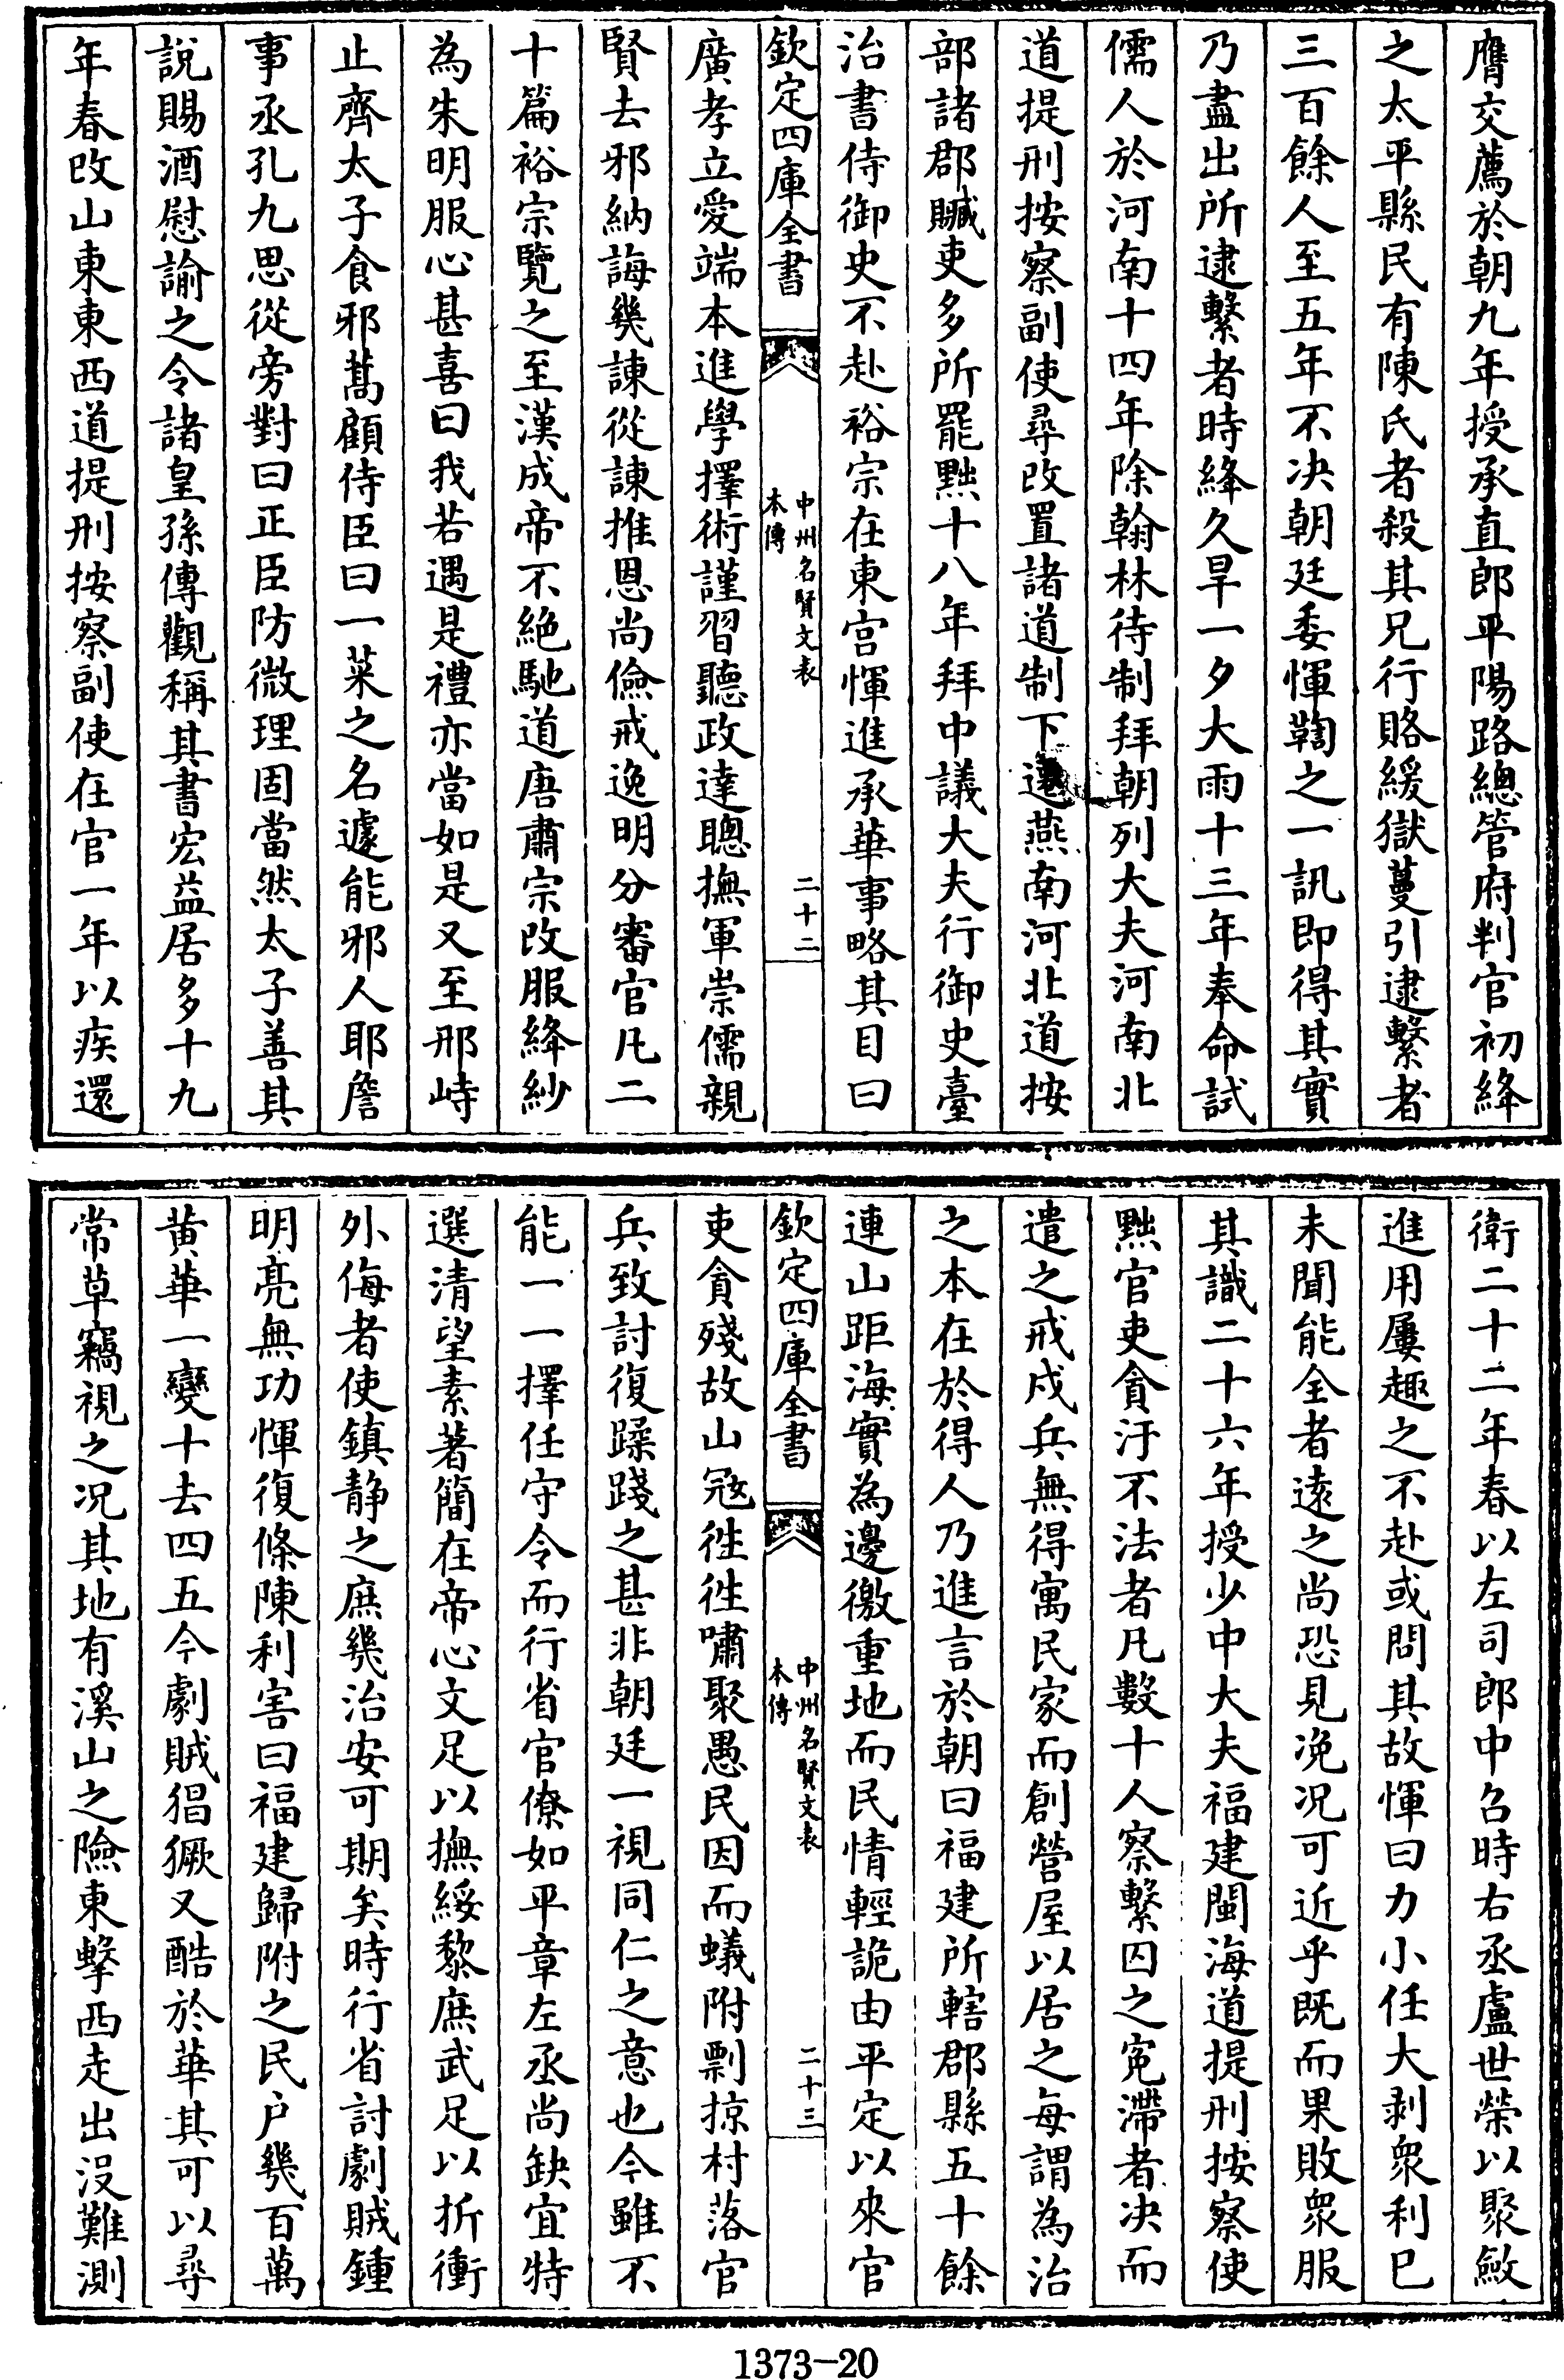 膺交薦於朝九年授承直郎平陽路總管府判官初絳
之太平縣民有陳氏者殺其兄行賂緩獄蔓引逮繫者
三百餘人至五年不决朝廷委惲鞫之一訊即得其實
乃盡出所逮繫者時絳久旱一夕大雨十三年奉命試
儒人於河南十四年除翰林待制拜朝列大夫河南北
道提刑按察副使尋改置諸道制下遷燕南河北道按
部諸郡贓吏多所罷黜十八年拜中議大夫行御史臺
治書侍御史不赴裕宗在東宫惲進承華事略其目曰
欽定四庫全書
中州名賢文表
本傳
二十二
廣孝立愛端本進學擇術謹習聽政達聰撫軍崇儒親
賢去邪納誨幾諫從諫推恩尚儉戒逸明分審官凡二
十篇裕宗覽之至漢成帝不絕馳道唐肅宗改服絳紗
為朱明服心甚喜曰我若遇是禮亦當如是又至邢峙
止齊太子食邪蒿顧侍臣曰一菜之名遽能邪人耶詹
事丞孔九思從旁對曰正臣防微理固當然太子善其
說賜酒慰諭之令諸皇孫傳觀稱其書宏益居多十九
年春改山東東西道提刑按察副使在官一年以疾還
衛二十二年春以左司郎中召時右丞盧世榮以聚斂
進用屢趣之不赴或問其故惲曰力小任大剥衆利已
未聞能全者遠之尚恐見凂况可近乎既而果敗衆服
其識二十六年授少中大夫福建閩海道提刑按察使
黜官吏貪汙不法者凡數十人察繫囚之寃滯者决而
遣之戒戍兵無得寓民家而創營屋以居之每謂為治
之本在於得人乃進言於朝曰福建所轄郡縣五十餘
連山距海實為邊徼重地而民情輕詭由平定以來官
欽定四庫全書
中州名賢文表
本傳
二十三
吏貪殘故山冦徃徃嘯聚愚民因而蟻附剽掠村落官
兵致討復蹂踐之甚非朝廷一視同仁之意也今雖不
能一一擇任守令而行省官僚如平章左丞尚缺宜特
選清望素著簡在帝心文足以撫綏黎庶武足以折衝
外侮者使鎮静之庶幾治安可期矣時行省討劇賊鍾
明亮無功惲復條陳利害曰福建歸附之民户幾百萬
黄華一變十去四五今劇賊猖獗又酷於華其可以尋
常草竊視之况其地有溪山之險東擊西走出没難測
1373-20